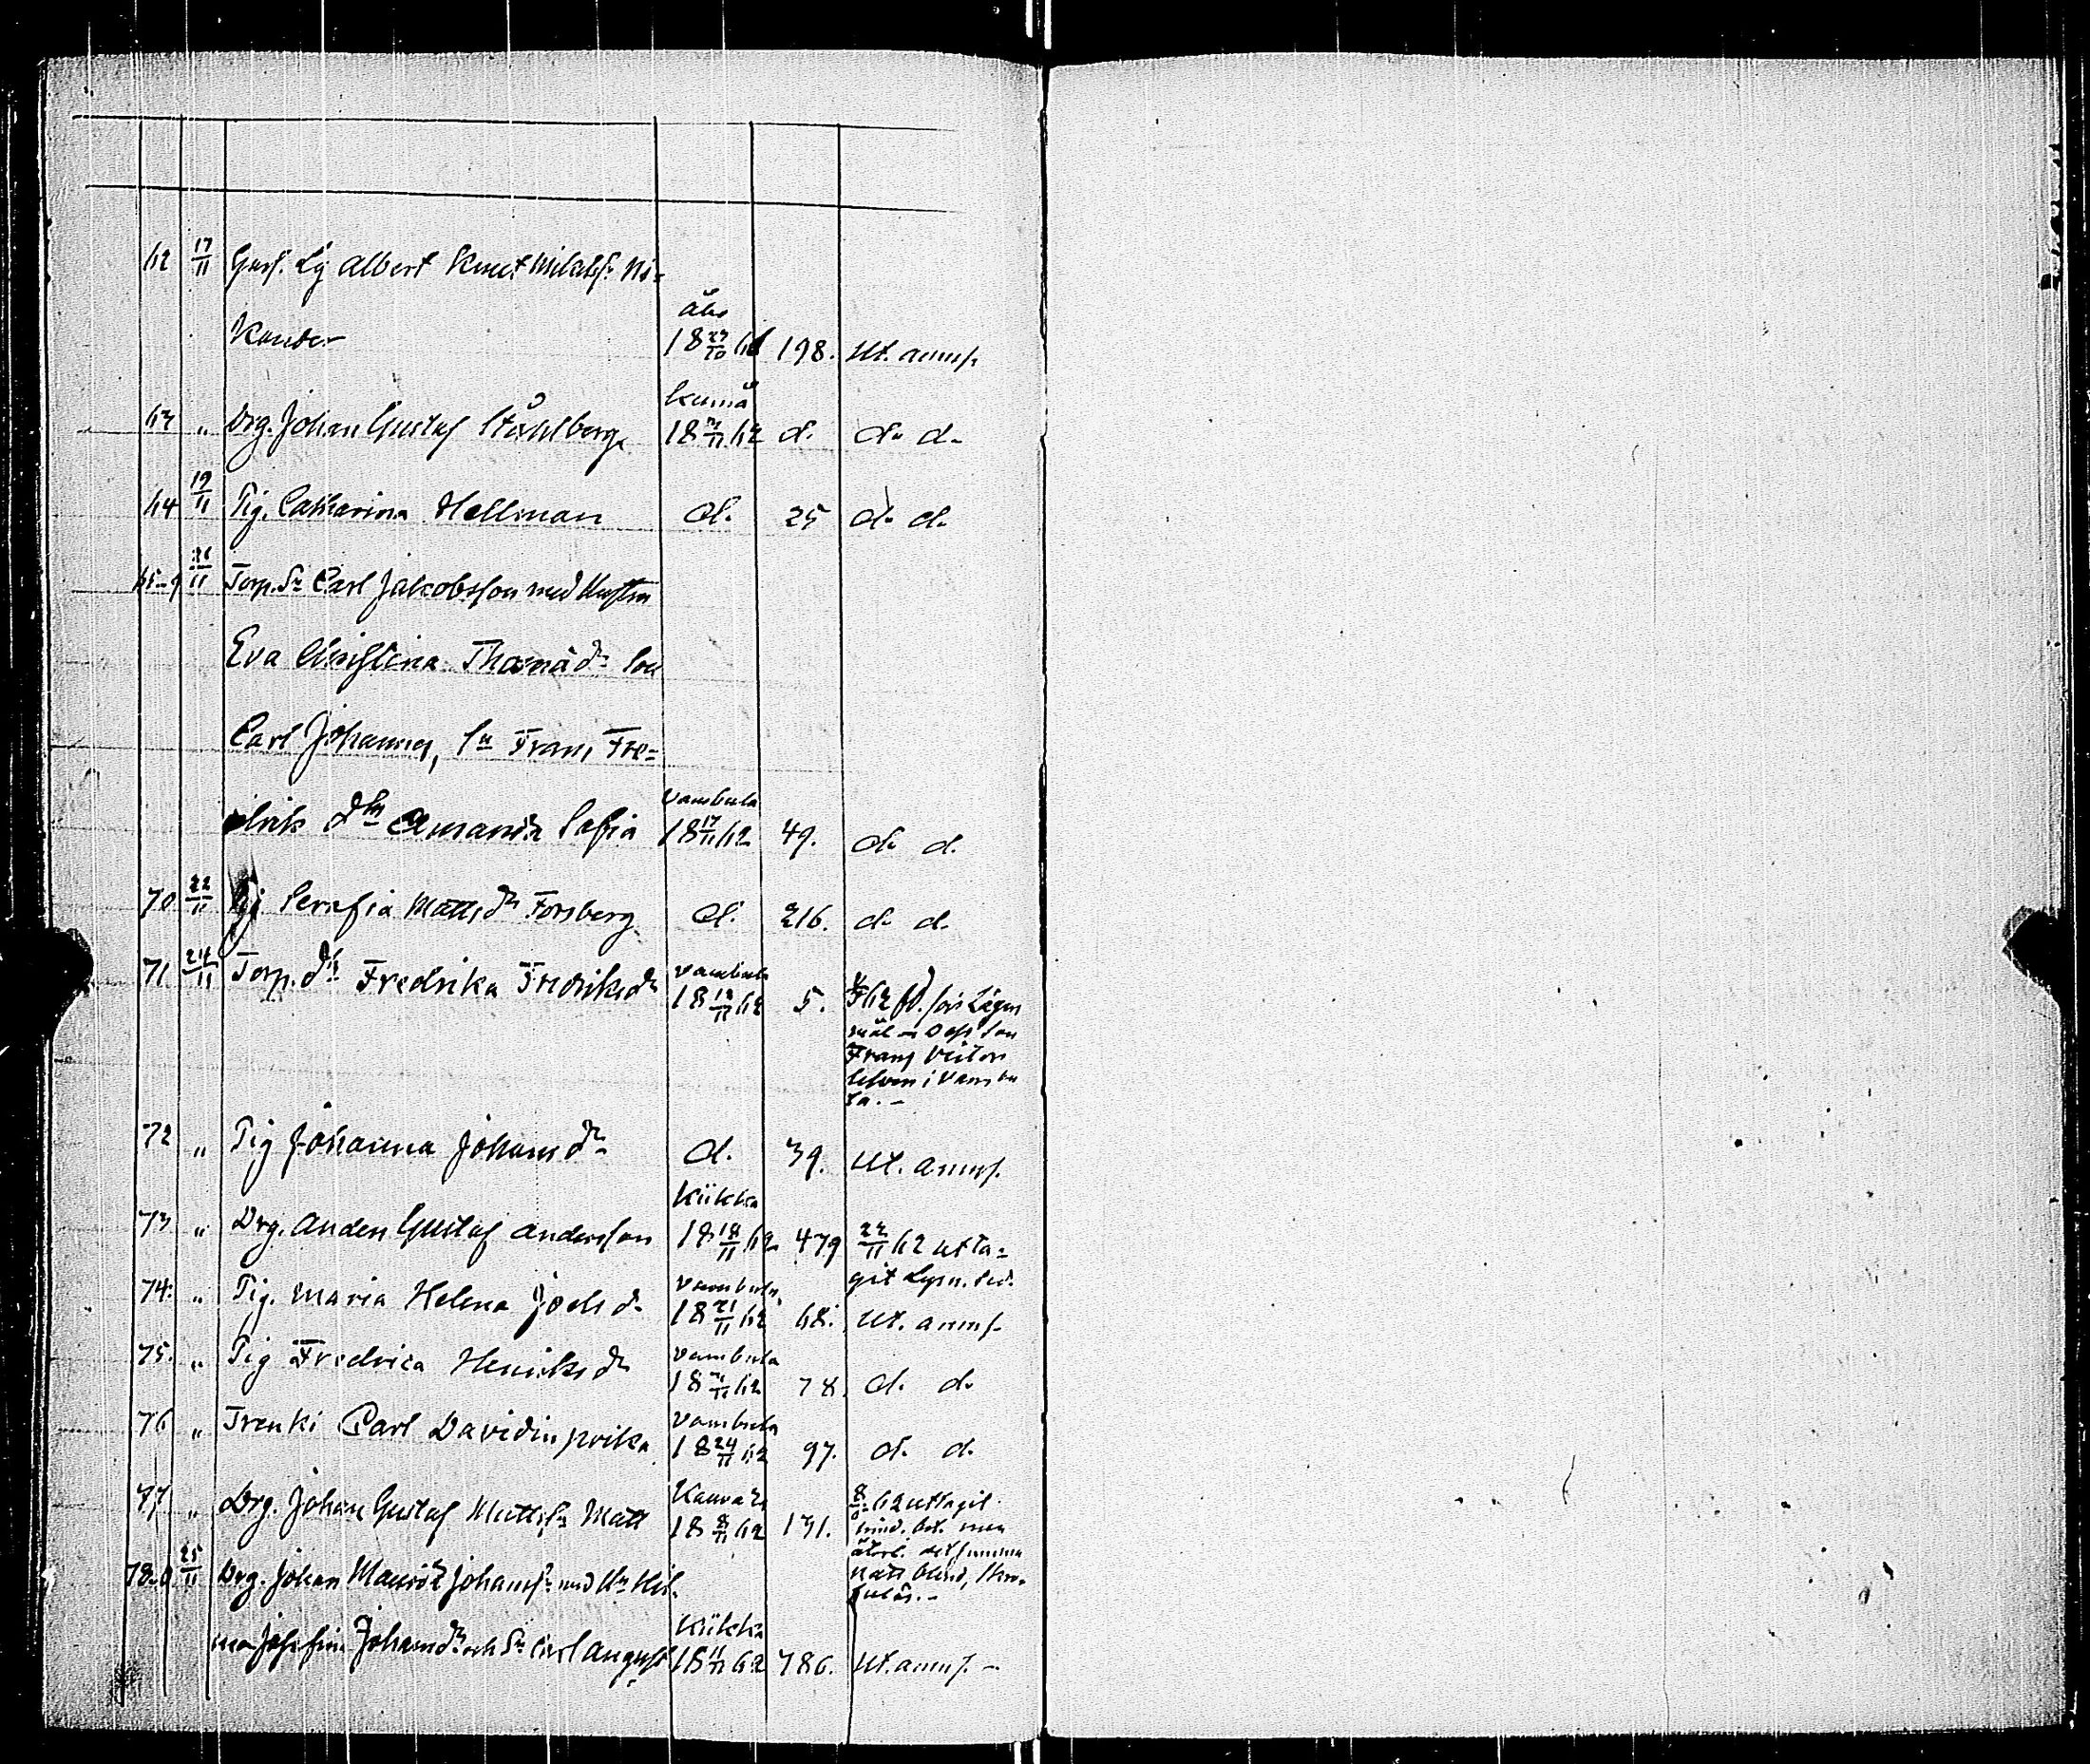 62 17/11 Albert Knut Ni-
kander Åbo 18 27/10 61 198. Ut. anmf.
63 " Drg. Johan Gustaf Ståhlberg Kumå 18 62 d. d. d.
64 19/11 Pig. Catharina Hellman d. 25 d. d.
65-9 21/11 Torp. Sn Carl Jakobsson med Hustru
Eva Christina Thomäd. Son
Carl Johannes, Sn Frans Fre-
drik dtr Amanda Sofia Vambula 18 17/11 62 49. d. d.
70 22/11 Serafia Mattsdr Forsberg d. 216. d. d.
71 24/11 Torp. dr Fredrika Fredriksdr Vambula 18 62 5. 62 för Läger
mål
Frans Victor
i Vambu
la. -
72 " Pig Johanna Johansdr d. 39. Ut. anmf.
73 " Drg. Anders Gustaf Andersson Kiikka 18 18/11 62 479 22/11 62 utta-
git
74. " Pig. Maria Helena Joelsd. Vambula 18 21/11 62 68. Ut. anmf.
75. " Pig Fredrica Henriksdr Vambula 18 62 78. d. d.
76 " Trenki Carl Davidin poika Vambula 18 24/11 62 97. d. d.
77 " Drg. Johan Gustaf Mattsn Matt 18 8/11 62 131. 62 uttagit
78-0 25/11 Drg. Johan Johansn med Hu Hil-
ma Josefina Johansdr och Sn Carl August Kiikka 18 11/11 62 786. Ut. anmf. -